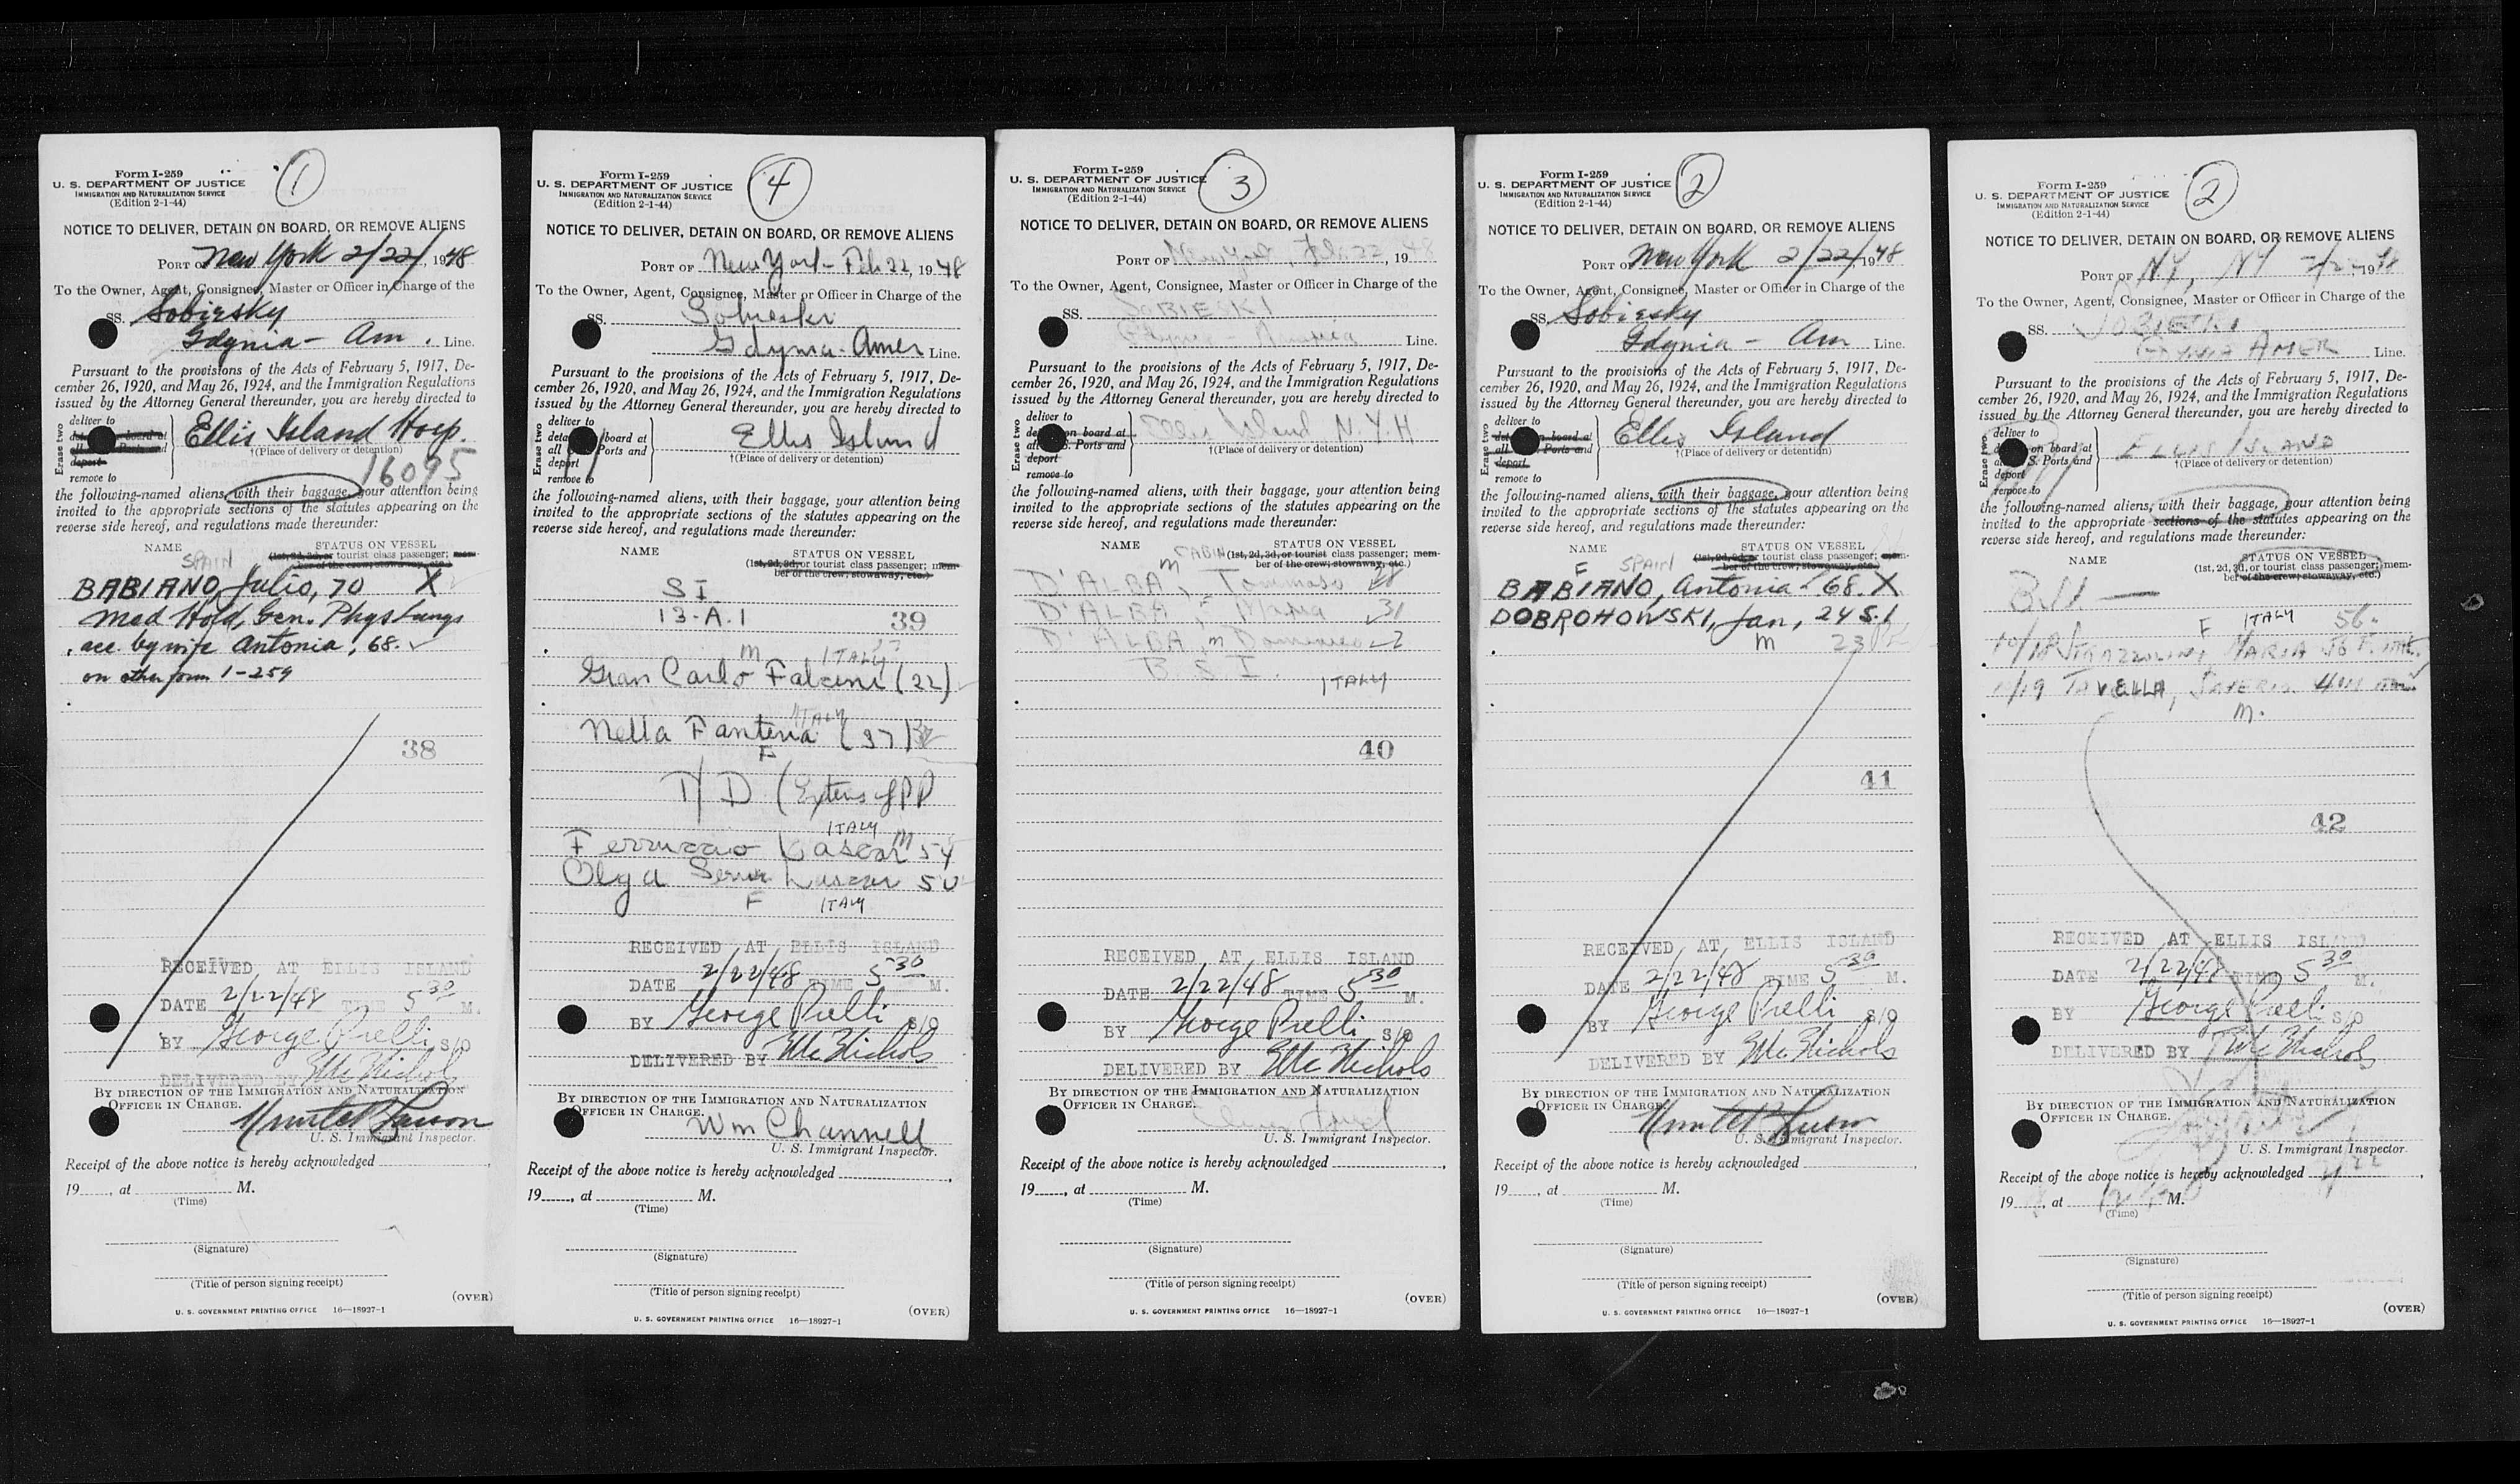 Form I-259
1
U. S. DEPARTMENT OF JUSTICE
IMMIGRATION AND NATURALIZATION SERVICE
(Edition 2-1-44)
NOTICE TO DELIVER, DETAIN ON BOARD, OR REMOVE ALIENS
PORT OF New York 2/22/, 1948
To the Owner, Agent, Consignee, Master or Officer in Charge of the
SS. Sobiesky
Gdynia - Am. Line.
Pursuant to the provisions of the Acts of February 5, 1917, De-
cember 26, 1920, and May 26, 1924, and the Immigration Regulations
issued by the Attorney General thereunder, you are hereby directed to
Erase two
deliver to
deport
remove to
Ellis Island Hosp.
†(Place of delivery or detention)
16095
the following-named aliens, with their baggage, your attention being
invited to the appropriate sections of the statutes appearing on the
reverse side hereof, and regulations made thereunder:
NAME
STATUS ON VESSEL
SPAIN
(1st, 2d, 3d, or tourist class passenger; mem-
ber of the crew; stowaway, etc.)
BABIANO, Julio, 70 X
Med Hold, Gen. Phys Lungs
acc. by wife Antonia, 68.
on other form 1-259
38
RECEIVED AT ELLIS ISLAND
DATE 2/22/48 TIME 5 30 M.
BY George Prelli s/o
DELIVERED BY
BY DIRECTION OF THE IMMIGRATION AND NATURALIZATION
OFFICER IN CHARGE.
U. S. Immigrant Inspector.
Receipt of the above notice is hereby acknowledged
19, at M.
(Time)
(Signature)
(Title of person signing receipt)
(OVER)
U. S. GOVERNMENT PRINTING OFFICE 16—18927-1
Form I-259
4
U. S. DEPARTMENT OF JUSTICE
IMMIGRATION AND NATURALIZATION SERVICE
(Edition 2-1-44)
NOTICE TO DELIVER, DETAIN ON BOARD, OR REMOVE ALIENS
PORT OF New York - Feb 22, 1948
To the Owner, Agent, Consignee, Master or Officer in Charge of the
SS. Sobieski
Gdynia-Amer Line.
Pursuant to the provisions of the Acts of February 5, 1917, De-
cember 26, 1920, and May 26, 1924, and the Immigration Regulations
issued by the Attorney General thereunder, you are hereby directed to
Erase two
deliver to
board at
Ports and
deport
remove to
Ellis Island
†(Place of delivery or detention)
the following-named aliens, with their baggage, your attention being
invited to the appropriate sections of the statutes appearing on the
reverse side hereof, and regulations made thereunder:
NAME
STATUS ON VESSEL
(1st, 2d, 3d, or tourist class passenger; mem-
ber of the crew; stowaway, etc.)
SI
13-A.1 39
M ITALY
Gian Carlo Falcini (22)
ITALY
Nella Fanteria (37)
F
T/D (Extens of PP
ITALY
Ferruccio M 54
Olga 50
F ITALY
RECEIVED AT ELLIS ISLAND
DATE 2/22/48 TIME 5 30 M.
BY George Prelli s/o
DELIVERED BY E Mc Nichols
BY DIRECTION OF THE IMMIGRATION AND NATURALIZATION
OFFICER IN CHARGE.
Wm Channell
U. S. Immigrant Inspector.
Receipt of the above notice is hereby acknowledged
19, at M.
(Time)
(Signature)
(Title of person signing receipt)
(OVER)
U. S. GOVERNMENT PRINTING OFFICE 16—18927-1
Form I-259
3
U. S. DEPARTMENT OF JUSTICE
IMMIGRATION AND NATURALIZATION SERVICE
(Edition 2-1-44)
NOTICE TO DELIVER, DETAIN ON BOARD, OR REMOVE ALIENS
PORT OF New York, Feb. 22, 1948
To the Owner, Agent, Consignee, Master or Officer in Charge of the
SS. SOBIESKI
Gdynia - America Line.
Pursuant to the provisions of the Acts of February 5, 1917, De-
cember 26, 1920, and May 26, 1924, and the Immigration Regulations
issued by the Attorney General thereunder, you are hereby directed to
Erase two
deliver to
on board at
Ports and
deport
remove to
Ellis Island N.Y.H
†(Place of delivery or detention)
the following-named aliens, with their baggage, your attention being
invited to the appropriate sections of the statutes appearing on the
reverse side hereof, and regulations made thereunder:
NAME
STATUS ON VESSEL
CABIN (1st, 2d, 3d, or tourist class passenger; mem-
ber of the crew; stowaway, etc.)
D'ALBA, M Tommaso
D'ALBA, F Maria 31
D'ALBA, M Domenico 2
B. S. I.
ITALY
40
RECEIVED AT ELLIS ISLAND
DATE 2/22/48 TIME 5 30 M.
BY George Prelli s/o
DELIVERED BY E Mc Nichols
BY DIRECTION OF THE IMMIGRATION AND NATURALIZATION
OFFICER IN CHARGE.
U. S. Immigrant Inspector.
Receipt of the above notice is hereby acknowledged
19, at M.
(Time)
(Signature)
(Title of person signing receipt)
(OVER)
U. S. GOVERNMENT PRINTING OFFICE 16—18927-1
Form I-259
2
U. S. DEPARTMENT OF JUSTICE
IMMIGRATION AND NATURALIZATION SERVICE
(Edition 2-1-44)
NOTICE TO DELIVER, DETAIN ON BOARD, OR REMOVE ALIENS
PORT OF New York 2/22/, 1948
To the Owner, Agent, Consignee, Master or Officer in Charge of the
SS. Sobiesky
Gdynia - Am Line.
Pursuant to the provisions of the Acts of February 5, 1917, De-
cember 26, 1920, and May 26, 1924, and the Immigration Regulations
issued by the Attorney General thereunder, you are hereby directed to
Erase two
deliver to
on board at
Ports and
deport
remove to
Ellis Island
†(Place of delivery or detention)
the following-named aliens, with their baggage, your attention being
invited to the appropriate sections of the statutes appearing on the
reverse side hereof, and regulations made thereunder:
NAME
STATUS ON VESSEL
F SPAIN
(1st, 2d, 3d, or tourist class passenger; mem-
ber of the crew; stowaway, etc.)
BABIANO, Antonia 68. X
DOBROHOWSKI, Jan, 24 S.I
M 23
41
RECEIVED AT ELLIS ISLAND
DATE 2/22/48 TIME 5 30 M.
BY George Prelli s/o
DELIVERED BY E Mc Nichols
BY DIRECTION OF THE IMMIGRATION AND NATURALIZATION
OFFICER IN CHARGE.
U. S. Immigrant Inspector.
Receipt of the above notice is hereby acknowledged
19, at M.
(Time)
(Signature)
(Title of person signing receipt)
(OVER)
U. S. GOVERNMENT PRINTING OFFICE 16—18927-1
Form I-259
2
U. S. DEPARTMENT OF JUSTICE
IMMIGRATION AND NATURALIZATION SERVICE
(Edition 2-1-44)
NOTICE TO DELIVER, DETAIN ON BOARD, OR REMOVE ALIENS
PORT OF NY, NY 1948
To the Owner, Agent, Consignee, Master or Officer in Charge of the
SS. SOBIESKI
GDYNIA AMER Line.
Pursuant to the provisions of the Acts of February 5, 1917, De-
cember 26, 1920, and May 26, 1924, and the Immigration Regulations
issued by the Attorney General thereunder, you are hereby directed to
Erase two
deliver to
on board at
S. Ports and
deport
remove to
ELLIS ISLAND
†(Place of delivery or detention)
the following-named aliens, with their baggage, your attention being
invited to the appropriate sections of the statutes appearing on the
reverse side hereof, and regulations made thereunder:
NAME
STATUS ON VESSEL
(1st, 2d, 3d, or tourist class passenger; mem-
ber of the crew; stowaway, etc.)
F ITALY 56.
10/18 MARIA 56 F.
10/19 TAVELLA, SAVERIO
M.
42
RECEIVED AT ELLIS ISLAND
DATE 2/22/48 TIME 5 30 M.
BY George Prelli s/o
DELIVERED BY E Mc Nichols
BY DIRECTION OF THE IMMIGRATION AND NATURALIZATION
OFFICER IN CHARGE.
U. S. Immigrant Inspector.
Receipt of the above notice is hereby acknowledged
19, at M.
(Time)
(Signature)
(Title of person signing receipt)
(OVER)
U. S. GOVERNMENT PRINTING OFFICE 16—18927-1